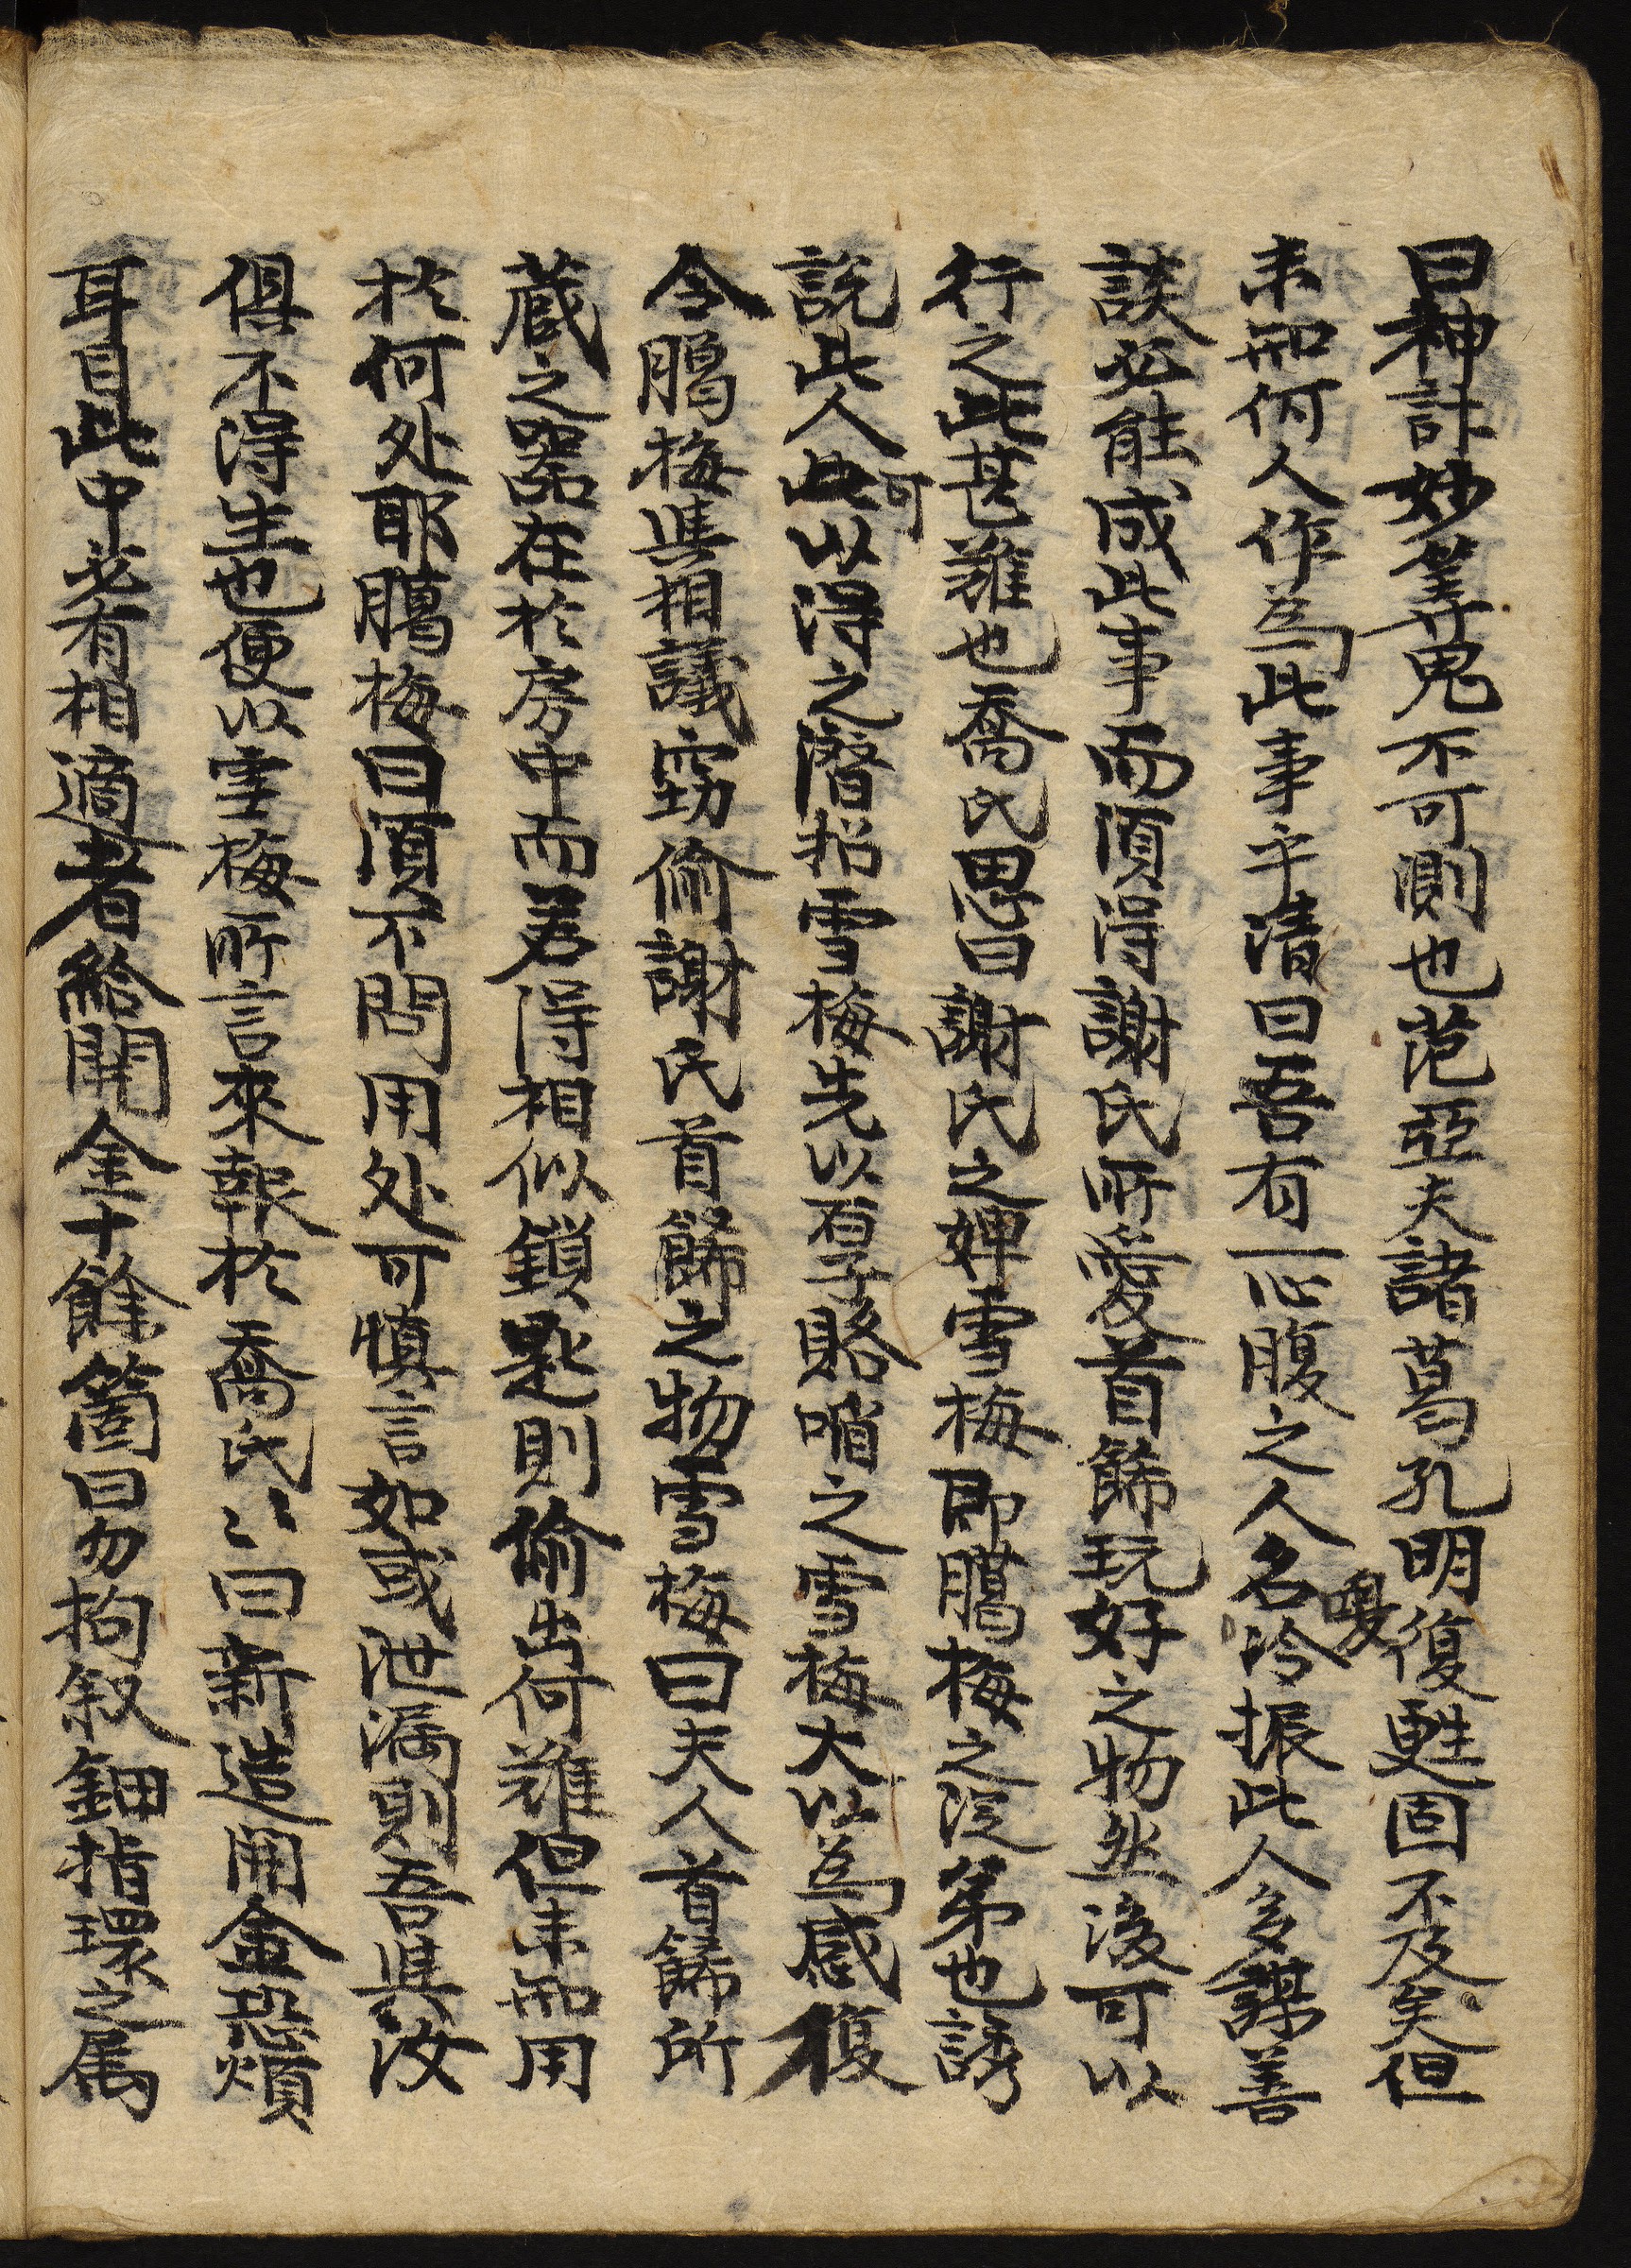 曰神計妙筭鬼不可測也范亞夫諸葛孔明復甦固不及矣但
未知何人作為此事乎清曰吾有一心腹之人名冷振此人多謀善
談必能成此事而須得謝氏所愛首飾玩好之物然後可以
行之此甚難也喬氏思曰謝氏之婢雪梅即臈梅之從弟也誘
說此人此可以得之潛招雪梅先以百子賂啗之雪梅大以為感復
令臈梅與相議竊偷謝氏首飾之物雪梅曰夫人首飾所
蔵之器在於房中而若得相似鎖匙則偷出何難但未知用
於何処耶臈梅曰須不問用処可慎言如或泄漏則吾與汝
俱不得生也便以雪梅所言來報於喬氏以曰新造開金恐煩
耳目此中必有相適者給開金十餘箇曰勿拘釵鈿指環之属